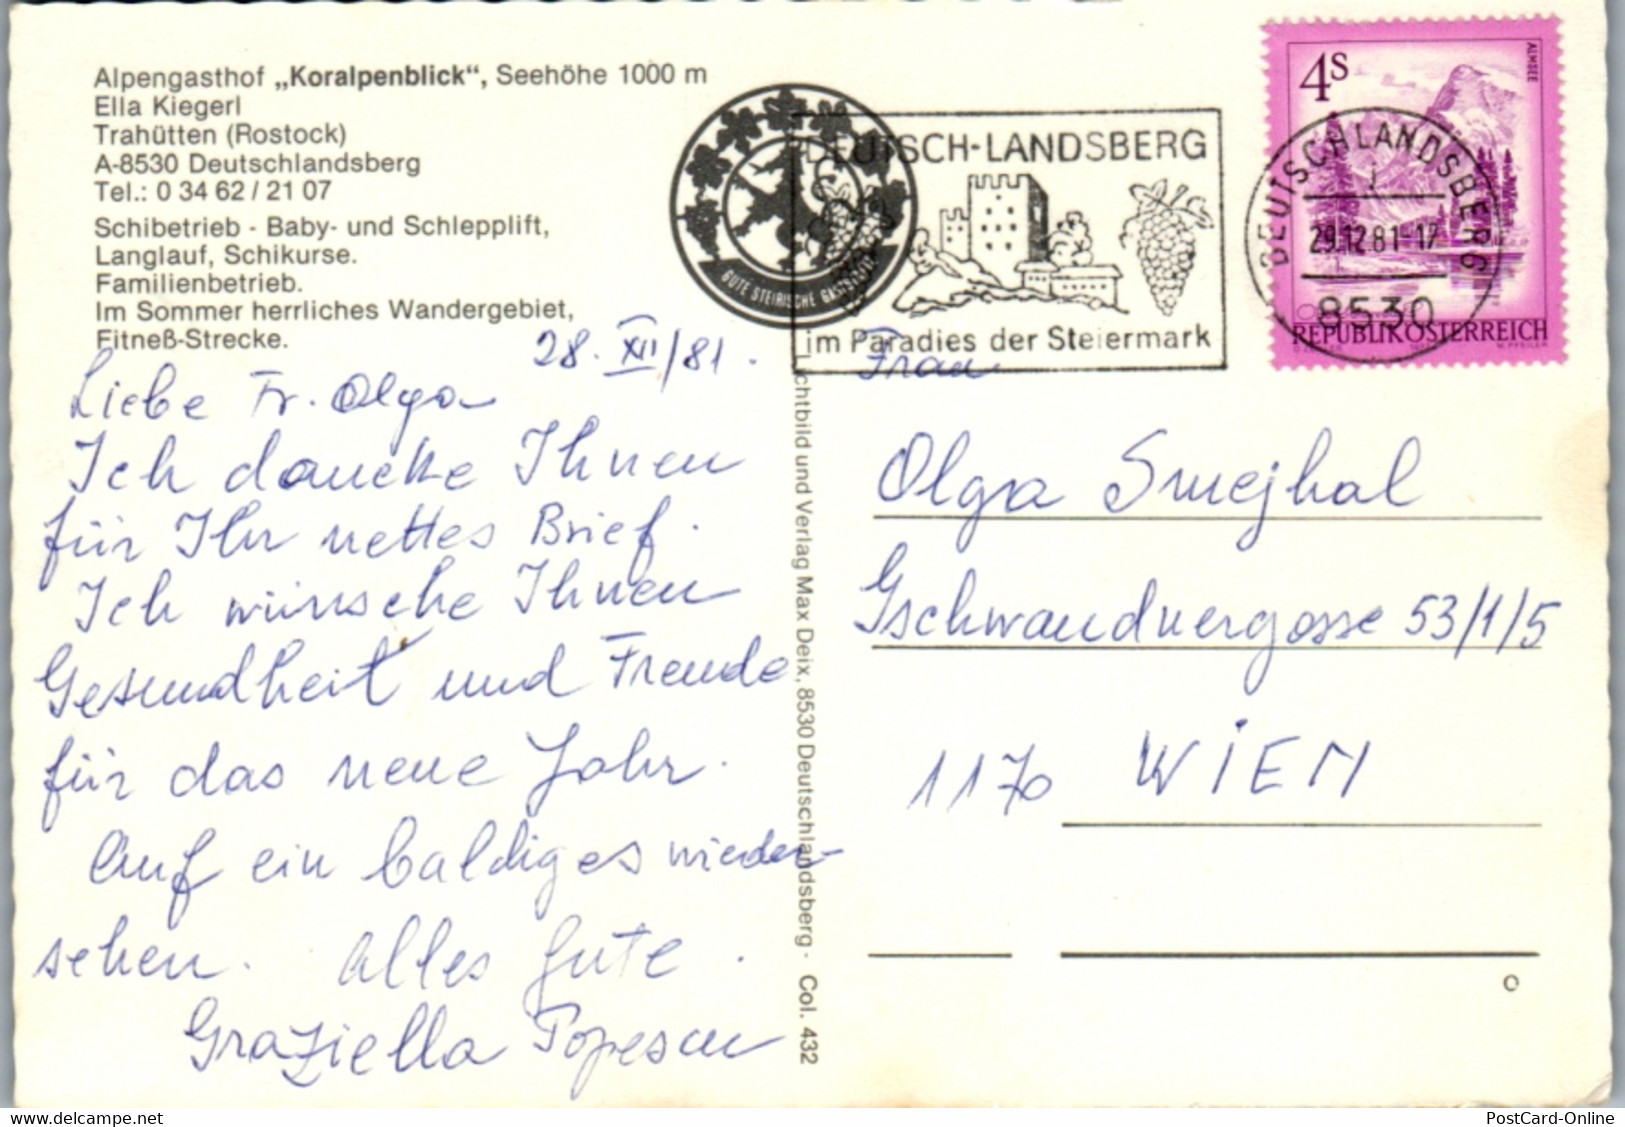 Alpengasthof „Koralpenblick“, Seehöhe 1000 m
Ella Kiegerl
Trahütten (Rostock)
A-8530 Deutschlandsberg
Tel.: 0 34 62 / 21 07
Schibetrieb - Baby- und Schlepplift,
Langlauf, Schikurse.
Familienbetrieb.
Im Sommer herrliches Wandergebiet,
Fitneß-Strecke.
28. XII/81.
Liebe Fr. Olga
Ich dancke Ihnen
für Ihr nettes Brief.
Ich wünsche Ihnen
Gesundheit und Freude
für das neue Jahr.
Auf ein baldiges wieder-
sehen. Alles Gute.
Graziella Popescu
Lichtbild und Verlag Max Deix, 8530 Deutschlandsberg · Col. 432
GUTE STEIRISCHE
DEUTSCH-LANDSBERG
im Paradies der Steiermark
4S
ALMSEE
REPUBLIK ÖSTERREICH
DEUTSCHLANDSBERG
29.12.81-17
8530
Frau
Olga Smejkal
Gschwandnergasse 53/1/5
1170 WIEN
www.delcampe.net
PostCard-Online